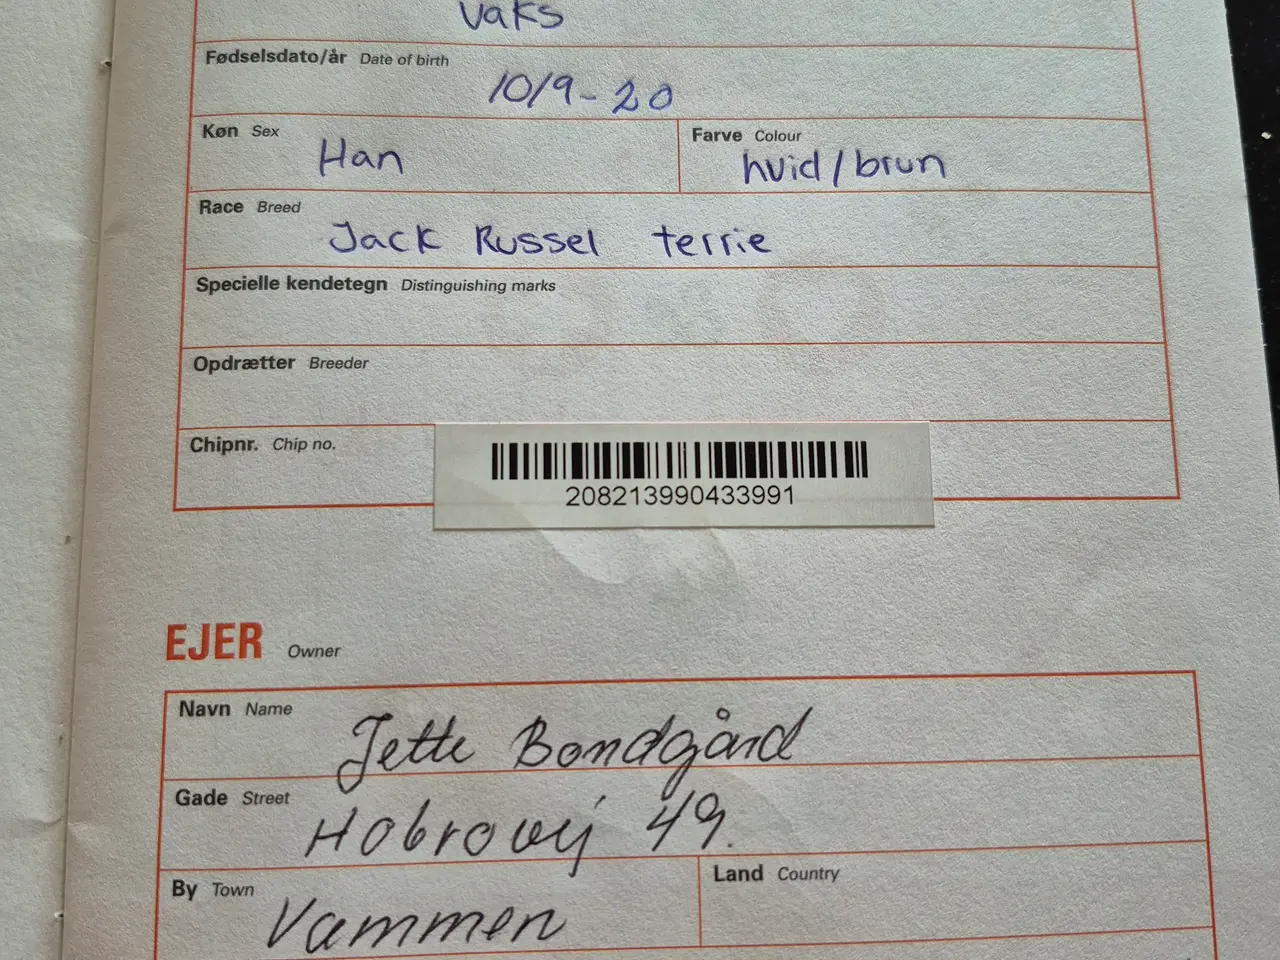 Vaks
Fødselsdato/år Date of birth
10/9-20
Køn Sex
Han
Farve Colour
hvid/brun
Race Breed
Jack Russel terrie
Specielle kendetegn Distinguishing marks
Opdrætter Breeder
Chipnr. Chip no.
208213990433991
EJER Owner
Navn Name
Jette Bondgård
Gade Street
Hobrovej 49.
By Town
Vammen
Land Country